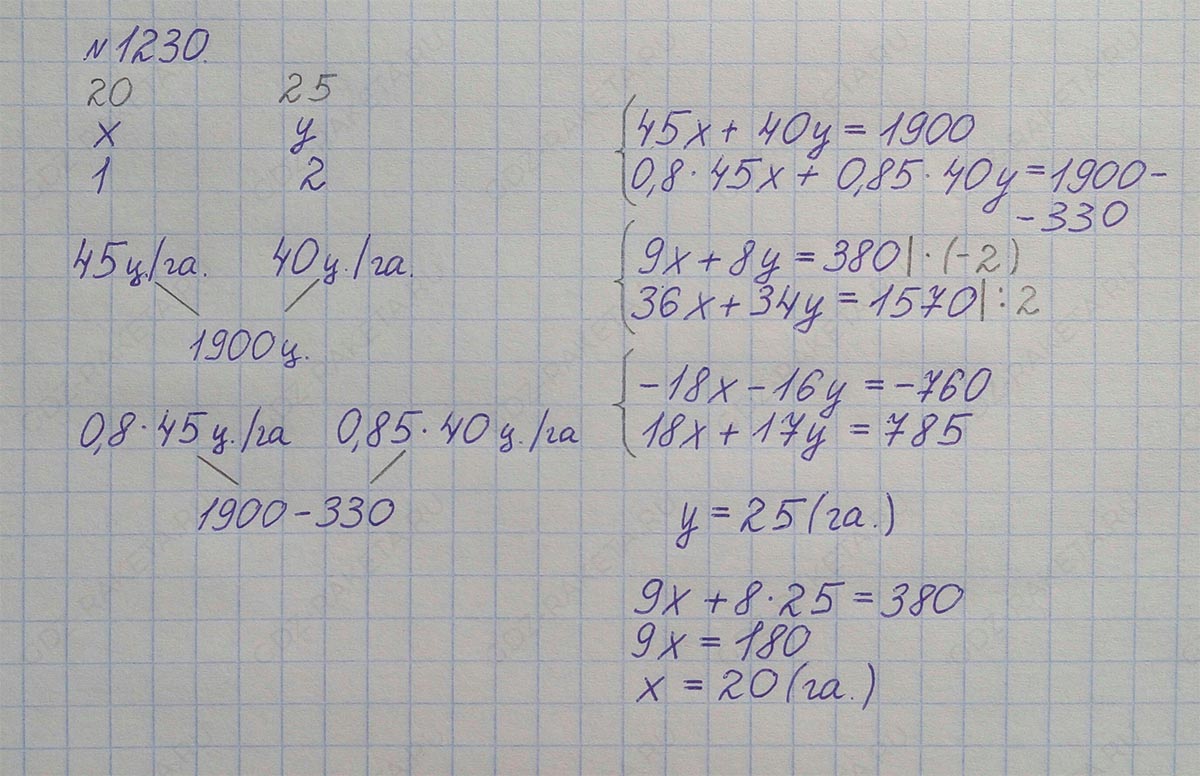 №1230.
20 25
x y
1 2
45ц/га. 40ц./га.
1900ц.
0,8·45ц./га 0,85·40ц./га
1900-330
45x+40y=1900
0,8·45x+0,85·40y=1900-
-330
9x+8y=380|·(-2)
36x+34y=1570|:2
-18x-16y=-760
18x+17y=785
y=25(га.)
9x+8·25=380
9x=180
x=20(га.)
GDZ-RAKETA.RU